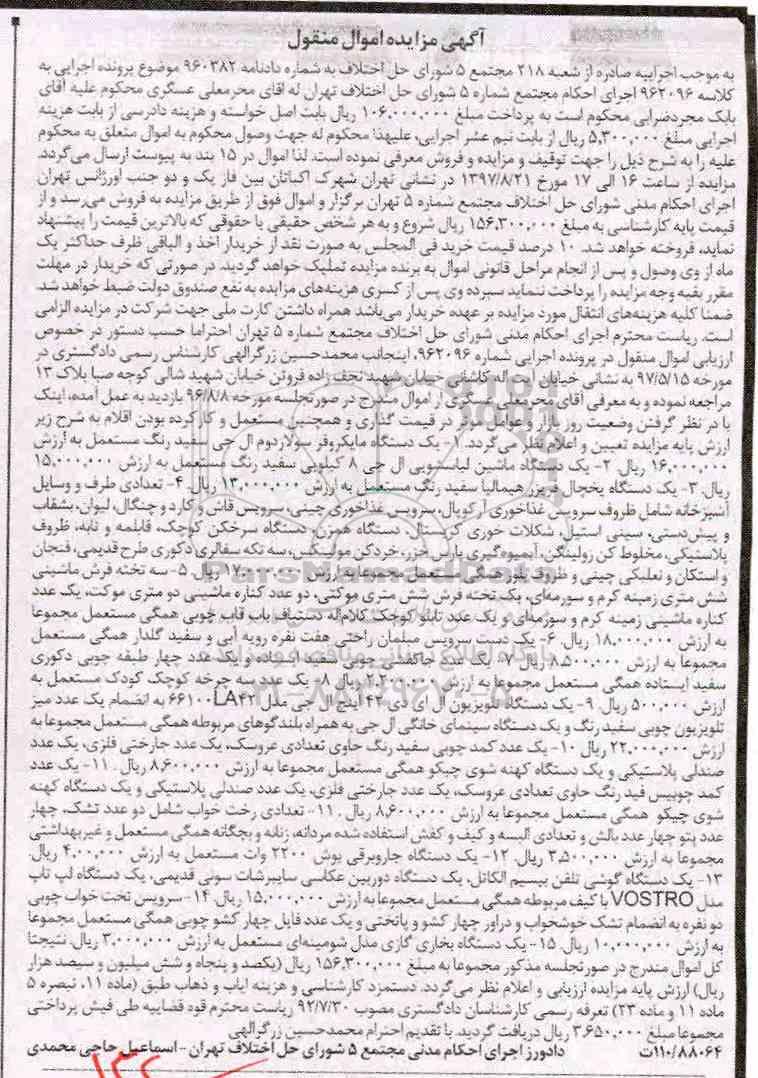 آگهی مزایده اموال منقول
به موجب اجراییه صادره از شعبه ۲۱۸ مجتمع ۵ شورای حل اختلاف به شماره دادنامه ۹۶۰۳۸۲ موضوع پرونده اجرایی به
کلاسه ۹۶۲۰۹۶ اجرای احکام مجتمع شماره ۵ شورای حل اختلاف تهران له اقای محرمعلی عسگری محکوم علیه آقای
بابک مجردضرابی محکوم است به پرداخت مبلغ ۱۰۶.۰۰۰.۰۰۰ ریال بابت اصل خواسته و هزینه دادرسی از بابت هزینه
اجرایی مبلغ ۵,۳۰۰,۰۰۰ ریال از بابت نیم عشر اجرایی، علیهذا محکوم له جهت وصول محکوم به اموال متعلق به محکوم
علیه را به شرح ذیل را جهت توقیف و مزایده و فروش معرفی نموده است. لذا اموال در ۱۵ بند به پیوست ارسال می‌گردد.
مزایده از ساعت ۱۶ الی ۱۷ مورخ ۱۳۹۷/۸/۲۱ در نشانی تهران شهرک اکباتان بین فاز یک و دو جنب اورژانس تهران
اجرای احکام مدنی شورای حل اختلاف مجتمع شماره ۵ تهران برگزار و اموال فوق از طریق مزایده به فروش می‌رسد و از
قیمت پایه کارشناسی به مبلغ ۱۵۶,۳۰۰,۰۰۰ ریال شروع و به هر شخص حقیقی یا حقوقی که بالاترین قیمت را پیشنهاد
نماید، فروخته خواهد شد. ۱۰ درصد قیمت خرید فی المجلس به صورت نقد از خریدار اخذ و الباقی ظرف حداکثر یک
ماه از وی وصول و پس از انجام مراحل قانونی اموال به برنده مزایده تملیک خواهد گردید. در صورتی که خریدار در مهلت
مقرر بقیه وجه مزایده را پرداخت ننماید سپرده وی پس از کسری هزینه‌های مزایده به نفع صندوق دولت ضبط خواهد شد.
ضمنا کلیه هزینه‌های انتقال مورد مزایده بر عهده خریدار می‌باشد همراه داشتن کارت ملی جهت شرکت در مزایده الزامی
است. ریاست محترم اجرای احکام مدنی شورای حل اختلاف مجتمع شماره ۵ تهران احتراما حسب دستور در خصوص
ارزیابی اموال منقول در پرونده اجرایی شماره ۹۶۲۰۹۶، اینجانب محمدحسین زرگرالهی کارشناس رسمی دادگستری در
مورخه ۹۷/۵/۱۵ به نشانی خیابان آیت اله کاشانی خیابان شهید نجف زاده فروتن خیابان شهید شالی کوچه صبا پلاک ۱۳
مراجعه نموده و به معرفی آقای محرمعلی عسگری از اموال مندرج در صورتجلسه مورخه ۹۶/۸/۸ بازدید به عمل آمده، اینک
با در نظر گرفتن وضعیت روز بازار و عوامل موثر در قیمت گذاری و همچنین مستعمل و کارکرده بودن اقلام به شرح زیر
ارزش پایه مزایده تعیین و اعلام نظر می‌گردد. ۱- یک دستگاه مایکروفر سولاردوم ال جی سفید رنگ مستعمل به ارزش
۱۶,۰۰۰,۰۰۰ ریال. ۲- یک دستگاه ماشین لباسشویی ال جی ۸ کیلویی سفید رنگ مستعمل به ارزش ۱۵,۰۰۰,۰۰۰
ریال. ۳- یک دستگاه یخچال فریزر هیمالیا سفید رنگ مستعمل به ارزش ۱۳,۰۰۰,۰۰۰ ریال. ۴- تعدادی ظرف و وسایل
آشپزخانه شامل ظروف سرویس غذاخوری آرکوپال، سرویس غذاخوری چینی، سرویس قاش و کارد و چنگال، لیوان، بشقاب
و پیش‌دستی، سینی استیل، شکلات خوری کریستال، دستگاه همزن، دستگاه سرخکن کوچک، قابلمه و تابه، ظروف
پلاستیکی، مخلوط کن رولینگتن، آبمیوه‌گیری پارس خزر، خردکن مولینکس، سه تکه سفالری دکوری طرح قدیمی، فنجان
و استکان و نعلبکی چینی و ظروف بلورشکن مستعمل مجموعا به ارزش ۱۷,۰۰۰,۰۰۰ ریال. ۵- سه تخته فرش ماشینی
شش متری زمینه کرم و سورمه‌ای، یک تخته فرش شش متری موکتی، دو عدد کناره ماشینی دو متری موکت، یک عدد
کناره ماشینی زمینه کرم و سورمه‌ای و یک عدد تابلو کوچک کلام‌اله دستباف باب قاب چوبی همگی مستعمل مجموعا
به ارزش ۱۸,۰۰۰,۰۰۰ ریال. ۶- یک دست سرویس مبلمان راحتی هفت نفره رویه آبی و سفید گلدار همگی مستعمل
مجموعا به ارزش ۸,۵۰۰,۰۰۰ ریال. ۷- یک عدد جاکفشی چوبی سفید ایستاده و یک عدد چهار طبقه چوبی دکوری
سفید ایستاده همگی مستعمل مجموعا به ارزش ۲,۲۰۰,۰۰۰ ریال ۸- یک عدد سه چرخه کوچک کودک مستعمل به
ارزش ۵۰۰,۰۰۰ ریال. ۹- یک دستگاه تلویزیون ال ای دی ۴۲ اینچ ال جی مدل ۴۲LA۶۶۱۰۰ به انضمام یک عدد میز
تلویزیون چوبی سفید رنگ و یک دستگاه سینمای خانگی ال جی به همراه بلندگوهای مربوطه همگی مستعمل مجموعا به
ارزش ۲۲,۰۰۰,۰۰۰ ریال ۱۰- یک عدد کمد چوبی سفید رنگ حاوی تعدادی عروسک، یک عدد جارختی فلزی، یک عدد
صندلی پلاستیکی و یک دستگاه کهنه شوی چیکو همگی مستعمل مجموعا به ارزش ۸,۶۰۰,۰۰۰ ریال . ۱۱- یک عدد
کمد چوبیس فید رنگ حاوی تعدادی عروسک، یک عدد جارختی فلزی، یک عدد صندلی پلاستیکی و یک دستگاه کهنه
شوی چیکو همگی مستعمل مجموعا به ارزش ۸,۶۰۰,۰۰۰ ریال . ۱۱- تعدادی رخت خواب شامل دو عدد تشک، چهار
عدد پتو چهار عدد بالش و تعدادی البسه و کیف و کفش استفاده شده مردانه، زنانه و بچگانه همگی مستعمل و غیربهداشتی
مجموعا به ارزش ۳,۵۰۰,۰۰۰ ریال. ۱۲- یک دستگاه جاروبرقی بوش ۲۲۰۰ وات مستعمل به ارزش ۴,۰۰,۰۰۰ ریال.
۱۳- یک دستگاه گوشی تلفن بیسیم الکاتل، یک دستگاه دوربین عکاسی سایبرشات سونی قدیمی، یک دستگاه لپ تاپ
مدل VOSTRO با کیف مربوطه همگی مستعمل مجموعا به ارزش ۱۵,۰۰۰,۰۰۰ ریال. ۱۴- سرویس تخت خواب چوبی
دو نفره به انضمام تشک خوشخواب و دراور چهار کشو و پاتختی و یک عدد فایل چهار کشو چوبی همگی مستعمل مجموعا
به ارزش ۱۰,۰۰۰,۰۰۰ ریال. ۱۵- یک دستگاه بخاری گازی مدل شومینه‌ای مستعمل به ارزش ۳,۰۰۰,۰۰۰ ریال. نتیجتا
کل اموال مندرج در صورتجلسه مذکور مجموعا به مبلغ ۱۵۶,۳۰۰,۰۰۰ ریال (یکصد و پنجاه و شش میلیون و سیصد هزار
ریال) ارزش پایه مزایده ارزیابی و اعلام نظر می‌گردد. دستمزد کارشناسی و هزینه ایاب و ذهاب طبق (ماده ۱۱، تبصره ۵
ماده ۱۱ و ماده ۲۳) تعرفه رسمی کارشناسان دادگستری مصوب ۹۲/۷/۳۰ ریاست محترم قوه قضاییه طی فیش پرداختی
مجموعا مبلغ ۳,۶۵۰,۰۰۰ ریال دریافت گردید. با تقدیم احترام محمدحسین زرگرالهی
۱۱۰/۸۸۰۶۴ت دادورز اجرای احکام مدنی مجتمع ۵ شورای حل اختلاف تهران - اسماعیل حاجی محمدی